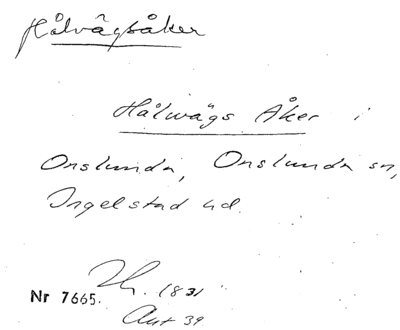 Hålvägsåker
Hålwägs Åker i
Onslunda, Onslunda sn,
Ingelstad hd.
Nr 7665. Zh. 1831
Akt 39